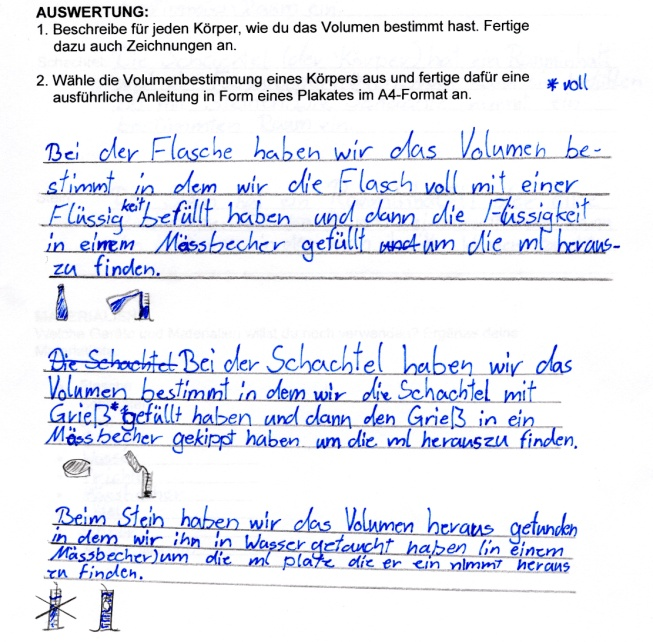 AUSWERTUNG:
1. Beschreibe für jeden Körper, wie du das Volumen bestimmt hast. Fertige
dazu auch Zeichnungen an.
2. Wähle die Volumenbestimmung eines Körpers aus und fertige dafür eine
ausführliche Anleitung in Form eines Plakates im A4-Format an.
* voll
Bei der Flasche haben wir das Volumen be-
stimmt in dem wir die Flasch voll mit einer
Flüssigkeit befüllt haben und dann die Flüssigkeit
in einem Mässbecher gefüllt und um die ml heraus-
zu finden.
Die Schachtel Bei der Schachtel haben wir das
Volumen bestimmt in dem wir die Schachtel mit
Grieß* gefüllt haben und dann den Grieß in ein
Mässbecher gekippt haben um die ml herauszu finden.
Beim Stein haben wir das Volumen heraus gefunden
in dem wir ihn in Wasser getaucht haben (in einem
Mässbecher) um die ml platz die er ein nimmt heraus
zu finden.